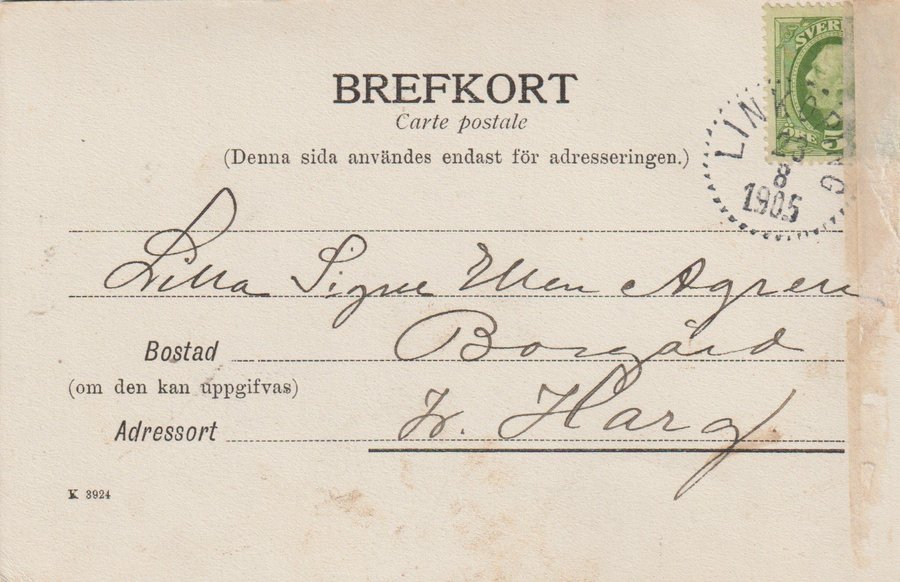 BREFKORT
Carte postale
(Denna sida användes endast för adresseringen.)
SVER
5 ÖRE
LINKÖPING
23
8
1905
Lilla Signe Ellen Agren
Borgård
Bostad
(om den kan uppgifvas)
Adressort
Harg
K 3924